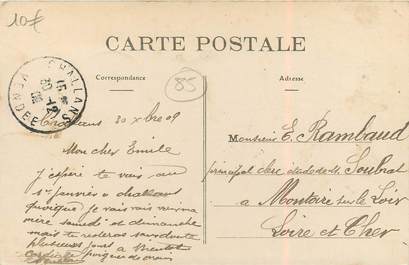 10€
CARTE POSTALE
Correspondance
Adresse
85
CHALLANS
VENDÉE
15 *
30 -12
09
Challans 30 Xbre 09
Mon cher Emile
J'espère te voir au
1er janvier à challans
puisque je vais voir ma
mère samedi et dimanche
mais tu resteras sans doute
plusieurs jours à
Cordiale poignée de main
Monsieur E. Rambaud
principal clerc étude de Me Soubrat
à Montoire sur le Loir
Loire et Cher